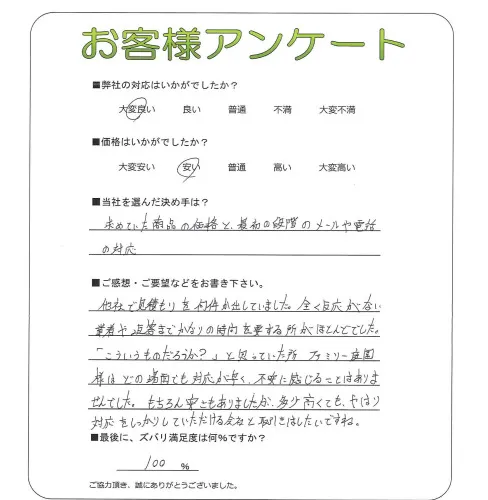 お客様アンケート
■弊社の対応はいかがでしたか?
大変良い 良い 普通 不満 大変不満
■価格はいかがでしたか?
大変安い 安い 普通 高い 大変高い
■当社を選んだ決め手は?
求めていた商品の価格と、最初の段階のメールや電話
の対応
■ご感想・ご要望などをお書き下さい。
他社で見積もりを何件か出していました。全く反応がない
業者や返答までかなりの時間を要する所がほとんどでした。
「こういうものだろうか?」と思っていた所 ファミリー庭園
様はどの場面でも対応が早く、不安に感じることはありま
せんでした。もちろん もありましたが、多少高くても、やはり
対応をしっかりしていただける会社と取引きはしたいですね。
■最後に、ズバリ満足度は何%ですか?
100 %
ご協力頂き、誠にありがとうございました。